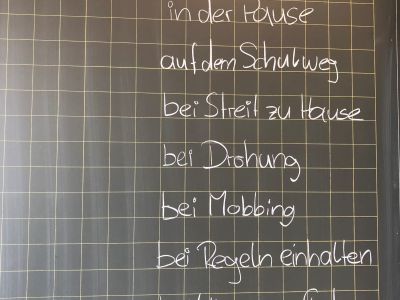 in der Pause
auf dem Schulweg
bei Streit zu Hause
bei Drohung
bei Mobbing
bei Regeln einhalten